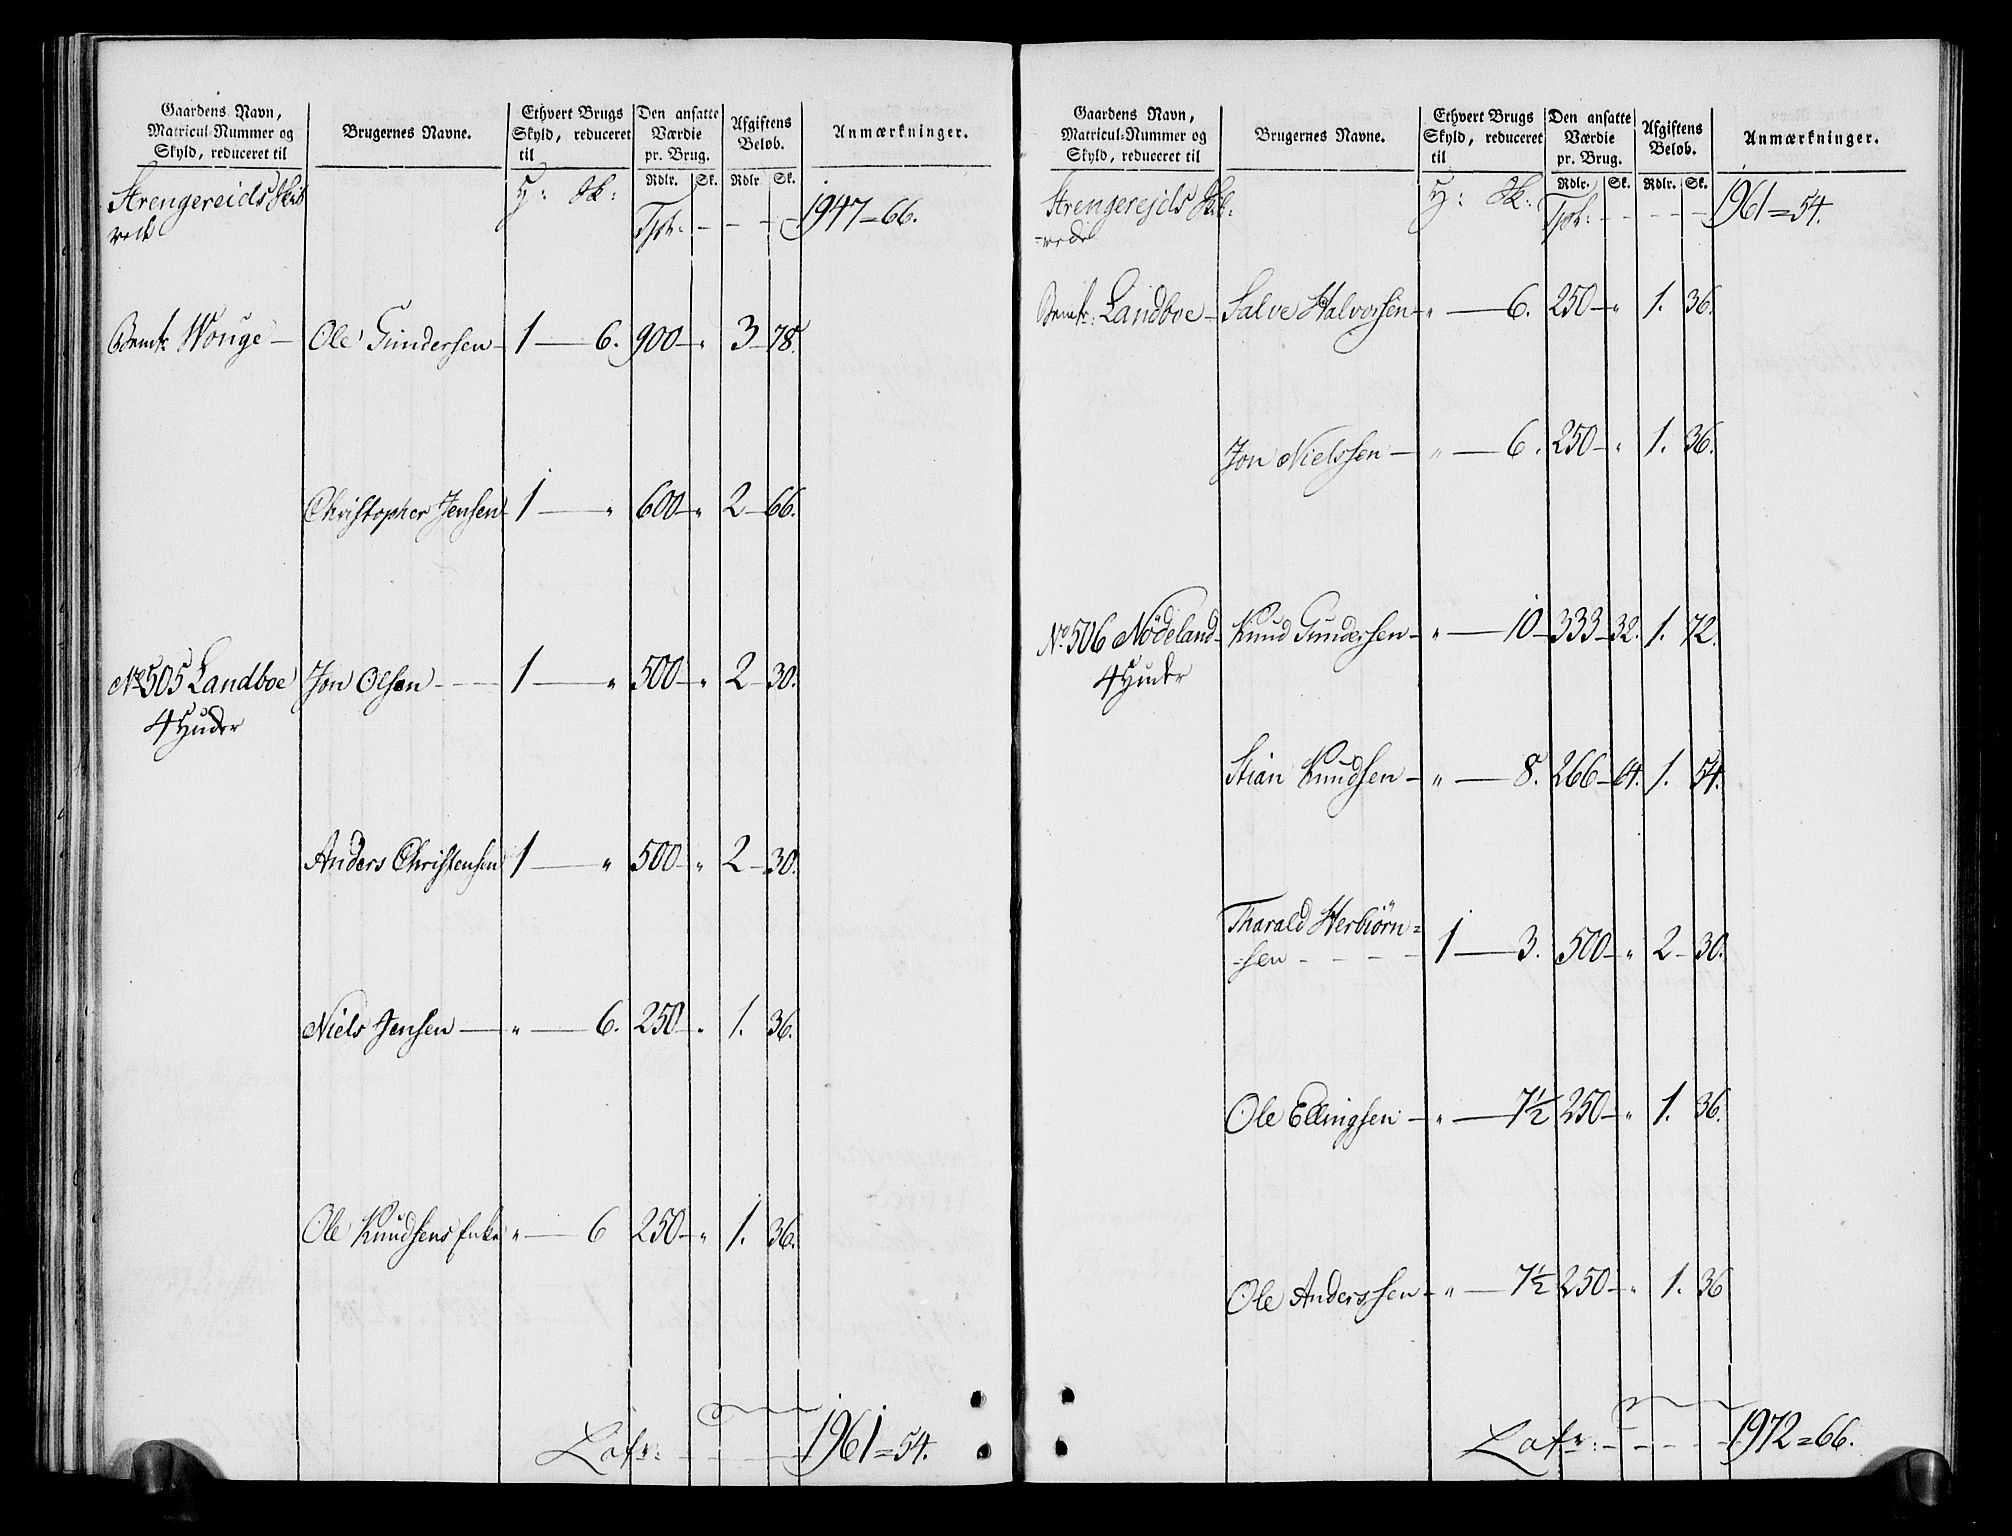 Gaardens Navn,
Matricul-Nummer og
Skyld, reduceret til
Brugernes Navne.
Ethvert Brugs
Skyld, reduceret
til
Den ansatte
Værdie
pr. Brug.
Afgiftens
Beløb.
Anmærkninger.
Rdlr. Sk. Rdlr. Sk.
Strengereids Skib
rede
H: Sk:
Tspt: - - - 1947=66.
Bemte Wouge — Ole Gundersen — 1 — 6. 900 — " 3 — 78.
Christopher Jensen 1 — " 600 — " 2 — 66.
No 505 Landboe Jon Olsen — 1 — " 500 — " 2 — 30.
4 Huder
Anders Christensen 1 — " 500 — " 2 — 30.
Niels Jensen — " — 6. 250 — " 1. 36.
Ole Knudsens Enke " — 6 250 — " 1. 36.
Lats: - - - 1961=54.
Gaardens Navn,
Matricul-Nummer og
Skyld, reduceret til
Brugernes Navne.
Ethvert Brugs
Skyld, reduceret
til
Den ansatte
Værdie
pr. Brug.
Afgiftens
Beløb.
Anmærkninger.
Rdlr. Sk. Rdlr. Sk.
Strengereids Skib:
-rede
H: Sk:
Tspt: - - - 1961=54.
Bemte: Landboe — Salve Halvorsen — " — 6. 250 — " 1. 36.
Jon Nielssen — " — 6. 250 — " 1. 36.
No 506 Nödeland — Knud Gunderssen — " — 10 — 333 — 32. 1. 72.
4 Huder
Stian Knudsen — " — 8. 266 — 64. 1. 54.
Tharald Herbiörn=
-sen - - - 1 — 3. 500 — " 2 — 30.
Ole Ellingsen — " — 7½ 250 — " 1. 36.
Ole Anderssen — " — 7½ 250 — " 1. 36
Lats: - - - 1972=66.